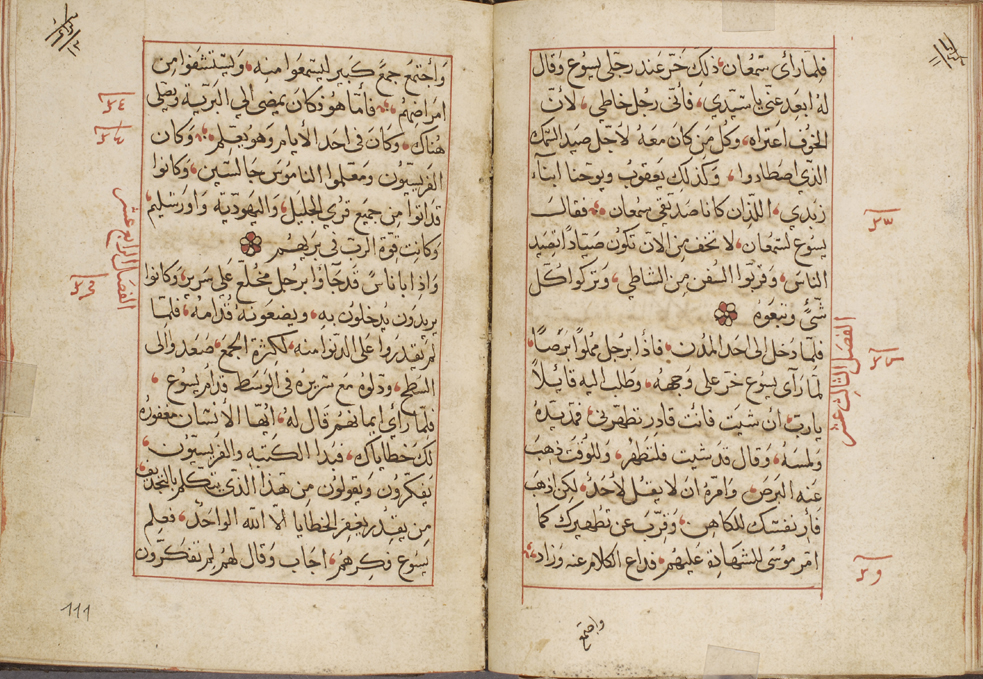 فلما رأى سمعان ذلك خر عند رجلي يسوع وقال
له ابعد عني يا سيدي، فأني رجل خاطي، لأن
الخوف اعتراه، وكل من كان معه لاجل صيد السمك
الذي اصطادوا، وكذلك يعقوب ويوحنا ابناء
زبدي، اللذان كانا صديقي سمعان، فقال
يسوع لسمعان، لا تخف من الان تكون صيادًا تصيد
الناس، وقربوا السفن من الشاطي، وتركوا كل
شي وتبعوه
فلما دخل الى احد المدن، فاذا برجل مملوا برصًا،
لما رآى يسوع خر على وجهه، وطلب اليه قايلًا
يا رب، ان شيت فانت قادر تطهرني، فمد يده
ولمسه، وقال قد شيت فلتطهر، وللوقت ذهب
عنه البرص، وامره ان لا يقل لأحد، لكن اذهب
فأر نفسك للكاهن، وقرب عن تطهيرك كما
امر موسى للشهادة عليهم، فذاع الكلام عنه وزاد،
الفصل الثالث عشر
واجتمع
واجتمع جمع كبير ليسمعوا منه، وليستشفوا من
امراضهم، فأما هو فكان يمضي الي البرية ويصلي
هناك، وكان في احد الأيام وهو يعلم، وكان
الفريسيون ومعلموا الناموس جالسين، وكانوا
قد اتوا من جميع قرى الجليل، واليهودية واورشليم،
وكانت قوة الرب في بريهم
واذا اناس قد جاؤا برجل مخلع على سرير، وكانوا
يريدون يدخلون به، ويضعونه قدامه، فلما
لم يقدروا على الدنوا منه، لكثرة الجمع، صعدو الى
السطح، ودلوه مع سريره في الوسط قدام يسوع،
فلما رأى ايمانهم قال له، ايها الأنسان مغفورة
لك خطاياك، فبدا الكتبه والفريسيون
يفكرون ويقولون من هذا الذي يتكلم بالتجديف
من يقدر يغفر الخطايا الا الله الواحد، فعلم
يسوع فكرهم، اجاب وقال لهم لم تفكرون
الفصل الرابع عشر
111